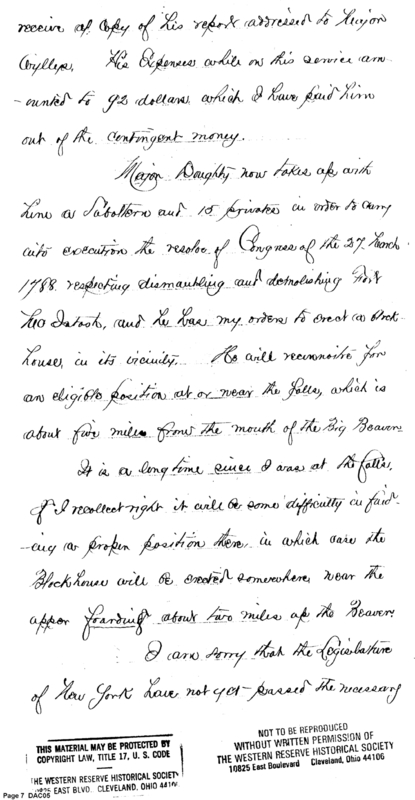 receive a Copy of his report addressed to Major
Wyllys. His Expenses while on this service am
-ounted to 92 dollars which I have paid him
out of the contingent money.
Major Doughty now takes up with
him a Subaltern and 15 privates in order to carry
into execution the resolve of Congress of the 27 March
1788 respecting dismantling and demolishing Fort
McIntosh, and he has my orders to erect a block
house, in its vicinity. He will reconnoitre for
an eligible position at or near the falls, which is
about five miles from the mouth of the Big Beaver.
It is a long time since I was at the falls.
If I recollect right it will be some difficulty in find-
-ing a proper position there, in which case the
Blockhouse will be erected somewhere near the
upper fording about two miles up the Beaver.
I am sorry that the Legislature
of New York have not yet passed the necessary
THIS MATERIAL MAY BE PROTECTED BY
COPYRIGHT LAW, TITLE 17, U. S. CODE
THE WESTERN RESERVE HISTORICAL SOCIETY
EAST BLVD. CLEVELAND, OHIO 44106
NOT TO BE REPRODUCED
WITHOUT WRITTEN PERMISSION OF
THE WESTERN RESERVE HISTORICAL SOCIETY
10825 East Boulevard Cleveland, Ohio 44106
Page 7 DAC05